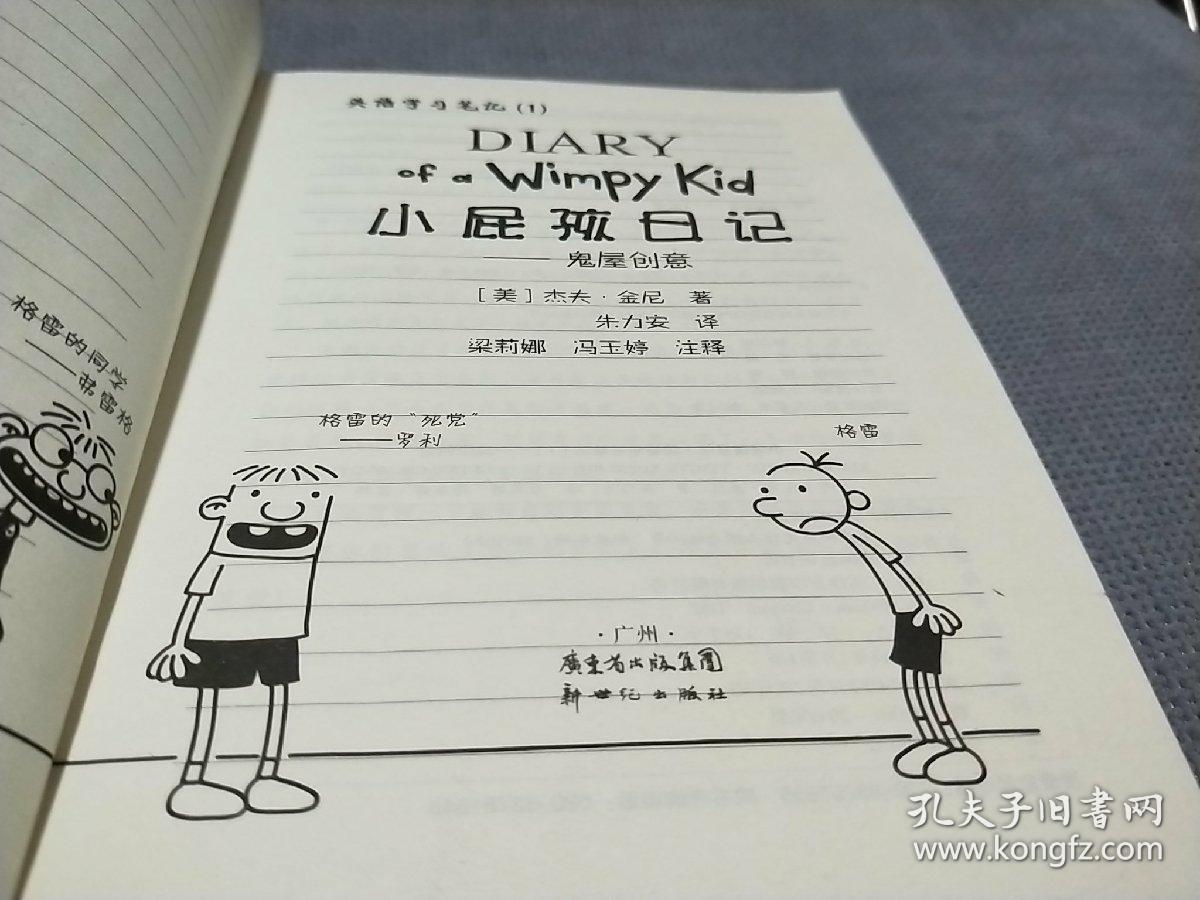 英语学习笔记(1)
DIARY
of a Wimpy Kid
小屁孩日记
——鬼屋创意
[美] 杰夫·金尼 著
朱力安 译
梁莉娜 冯玉婷 注释
格雷的同学
——弗雷格
格雷的“死党”
——罗利
格雷
·广州·
廣東省出版集團
新世纪出版社
孔夫子旧书网
www.kongfz.com